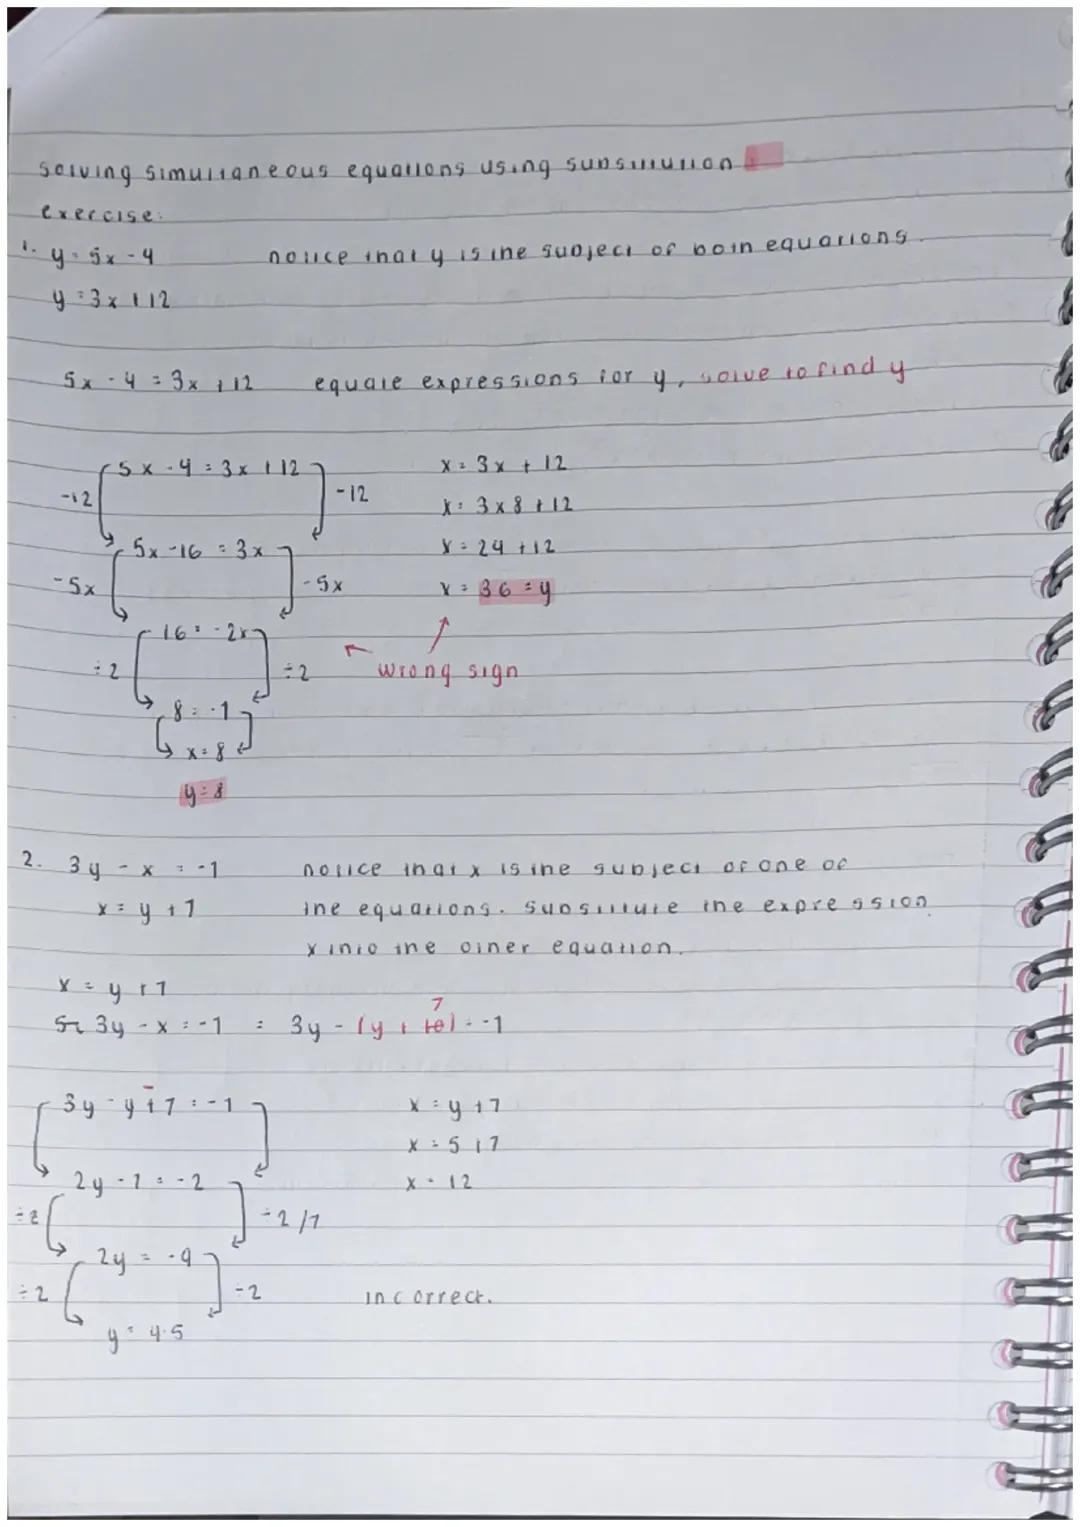 solving simultaneous equations using subsitution.
exercise:
1. y = 5x - 4 notice that y is the subject of both equations.
y = 3x + 12
5x - 4 = 3x + 12 equate expressions for y, solve to find y
5x - 4 = 3x + 12 x = 3x + 12
-12 -12 x = 3 x 8 + 12
5x - 16 = 3x x = 24 + 12
-5x -5x x = 36 = y
16 = -2x
÷2 ÷2 wrong sign
8 = -1
x = 8
y = 8
2. 3y - x = -1 notice that x is the subject of one of
x = y + 7 the equations. subsitute the expression
x into the other equation.
x = y + 7
7
3y - x = -1 = 3y - (y + 10) = -1
3y - y + 7 = -1 x = y + 7
x = 5 + 7
2y - 7 = -2 x = 12
÷2 ÷2 /7
2y = -9
÷2 ÷2 incorrect.
y = 4.5